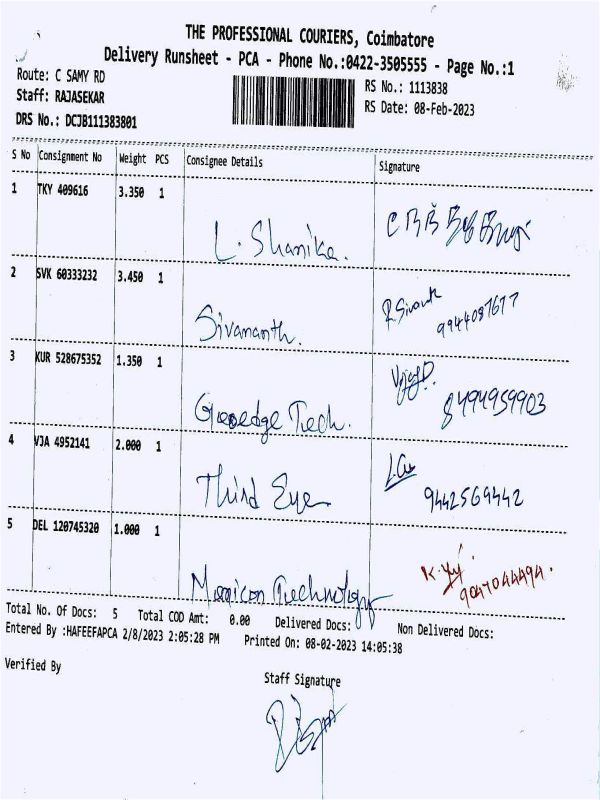 THE PROFESSIONAL COURIERS, Coimbatore
Delivery Runsheet - PCA - Phone No.:0422-3505555 - Page No.:1
Route: C SAMY RD
RS No.: 1113838
Staff: RAJASEKAR
RS Date: 08-Feb-2023
DRS No.: DCJB111383801
S No Consignment No Weight PCS Consignee Details Signature
1 TKY 409616 3.350 1
L. Shanika.
2 SVK 60333232 3.450 1
Sivananth. 9944087677
3 KUR 528675352 1.350 1
Tech. 8494959903
4 VJA 4952141 2.000 1
Third Eye 9442569442
5 DEL 120745320 1.000 1
Technology 9047044494.
Total No. Of Docs: 5 Total COD Amt: 0.00 Delivered Docs: Non Delivered Docs:
Entered By :HAFEEFAPCA 2/8/2023 2:05:28 PM Printed On: 08-02-2023 14:05:38
Verified By
Staff Signature